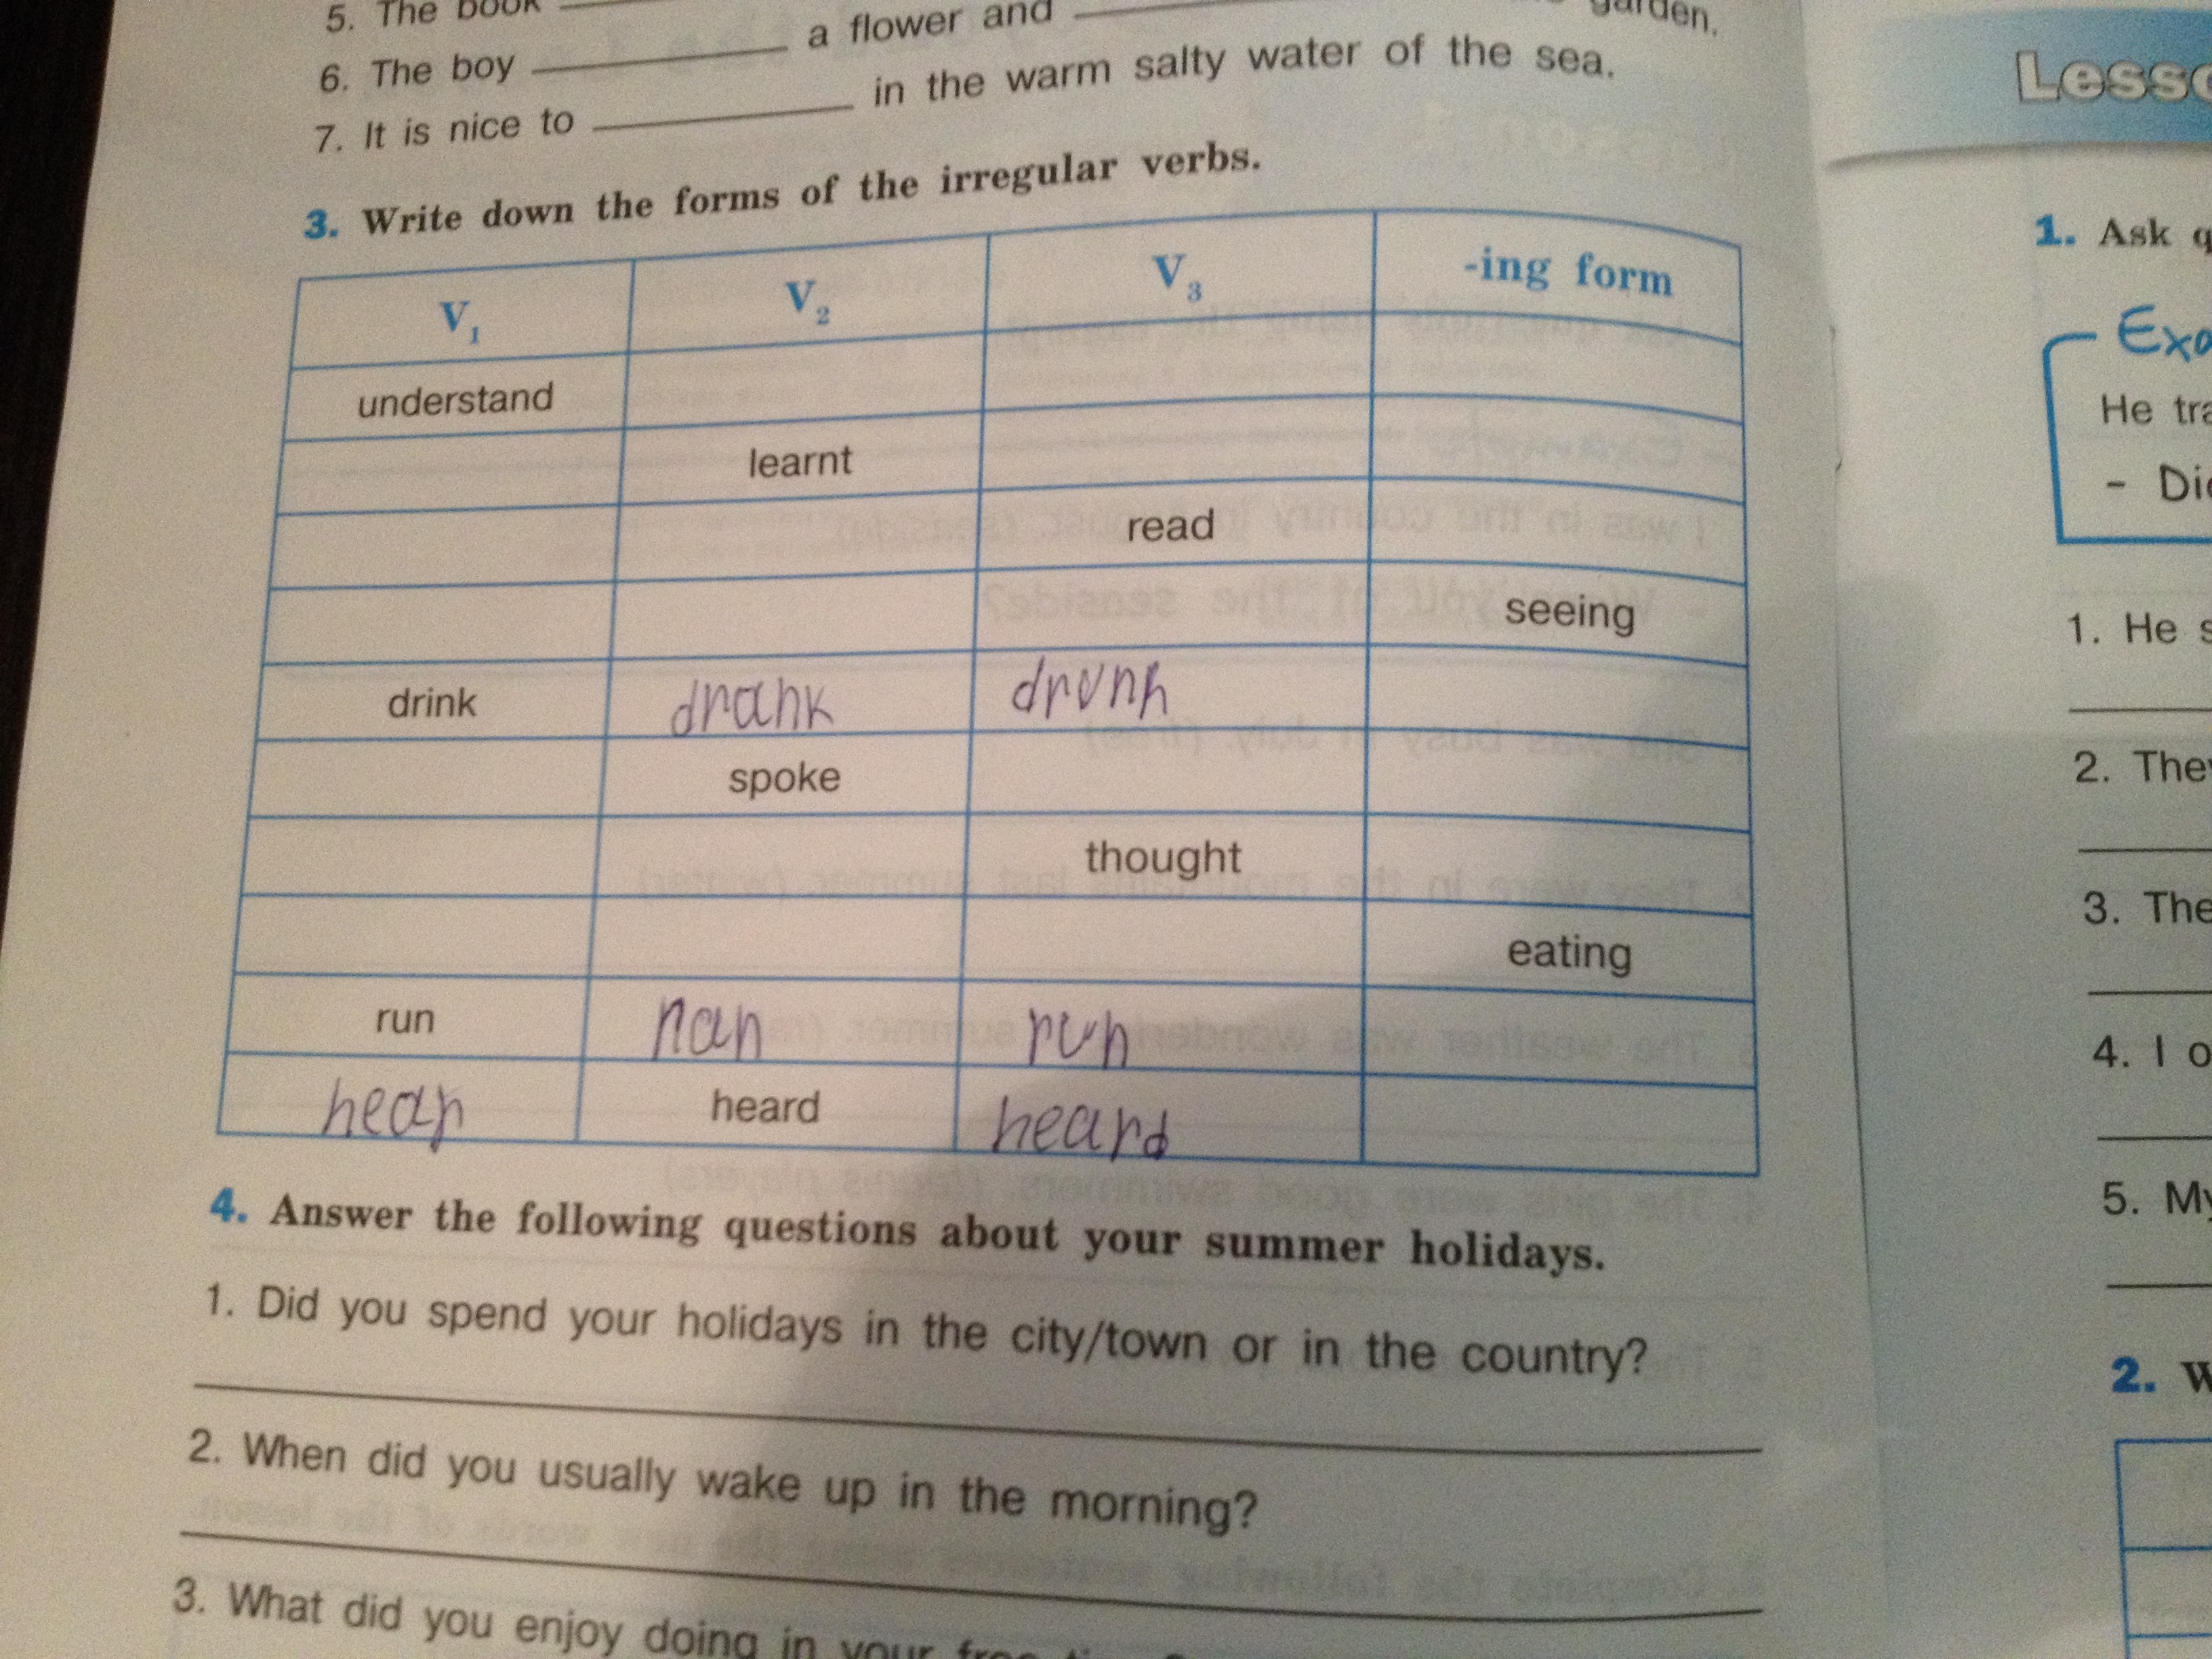 5. The book
garden.
6. The boy a flower and
7. It is nice to in the warm salty water of the sea.
3. Write down the forms of the irregular verbs.
V1 V2 V3 -ing form
understand
learnt
read
seeing
drink drank drunk
spoke
thought
eating
run ran run
hear heard heard
4. Answer the following questions about your summer holidays.
1. Did you spend your holidays in the city/town or in the country?
2. When did you usually wake up in the morning?
3. What did you enjoy doing in your free
1. Ask
He
- 
1. He
2.
3.
4. I
5. My
2.